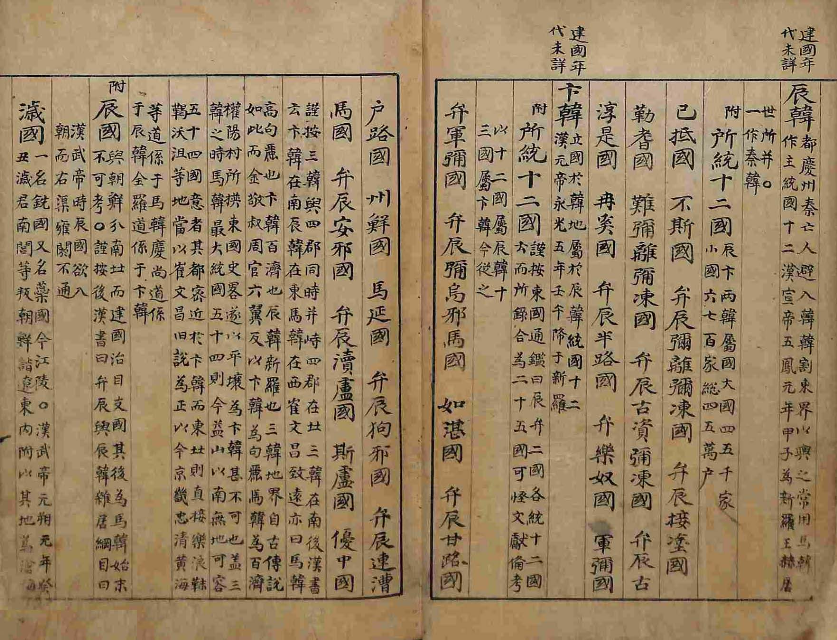 建國年
代未詳
辰韓
都慶州秦亡人避入韓韓割東界以與之常用馬韓
作主統國十二漢宣帝五鳳元年甲子為新羅王赫居
世所并○
一作秦韓
附 所統十二國
辰卞兩韓屬國大國四五千家
小國六七百家総四五萬戶
已抵國 不斯國 弁辰彌離彌凍國 弁辰接塗國
勒耆國 難彌離彌凍國 弁辰古資彌凍國 弁辰古
淳是國 冉奚國 弁辰半路國 弁樂奴國 軍彌國
建國年
代未詳
卞韓
立國於韓地屬於辰韓統國十二
漢元帝永光五年壬午降于新羅
附 所統十二國
謹按東國通鑑曰辰弁二國各統十二國
而所錄合為二十五國可怪文獻備考
以十二國屬辰韓十
三國屬卞韓今從之
弁軍彌國 弁辰彌烏邪馬國 如湛國 弁辰甘路國
戶路國 州鮮國 馬延國 弁辰狗邪國 弁辰連漕
馬國 弁辰安邪國 弁辰瀆盧國 斯盧國 優中國
謹按三韓與四郡同時并峙四郡在北三韓在南後漢書
云卞韓在南辰韓在東馬韓在西崔文昌致遠亦曰馬韓
高句麗也卞韓百濟也辰韓新羅也三韓地界自古傳說
如此而金敬叔周官六翼反以卞韓為句麗馬韓為百濟
權陽村所撈東國史畧遂以平壤為卞韓甚不可也盖三
韓之時馬韓最大統國五十四則今益山以南無地可容
五十四國意者其都密近於卞韓而東北則直接樂浪靺
鞨沃沮等地當以崔文昌旧說為正以今京畿忠清黄海
等道係于馬韓慶尚道係
于辰韓全羅道係于卞韓
附 辰國
與朝鮮分南北而建國治目支國其後為馬韓始末
不可考○謹按後漢書曰弁辰與辰韓雜居綱目曰
漢武帝時辰國欲入
朝而右渠雍閼不通
濊國
一名銳國又名蘂國今江陵○漢武帝元朔元年癸
丑濊君南閭等叛朝鮮詣遼東內附以其地為滄海